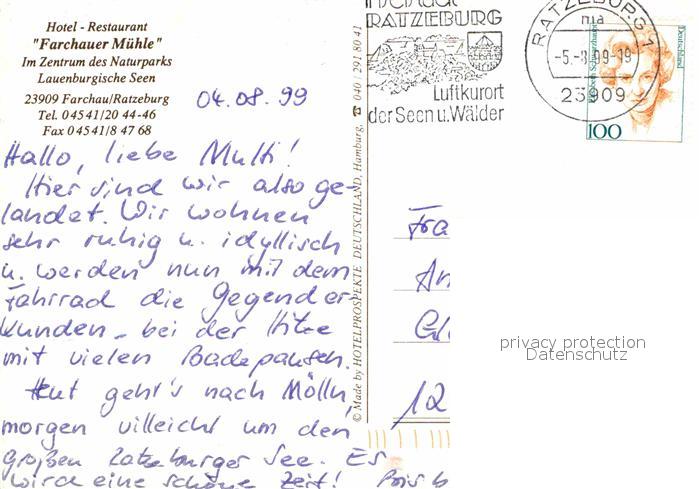 Hotel - Restaurant
"Farchauer Mühle"
Im Zentrum des Naturparks
Lauenburgische Seen
23909 Farchau/Ratzeburg
Tel. 04541/20 44-46
Fax 04541/8 47 68
04.08.99
Hallo, liebe Multi!
Hier sind wir also ge-
landet. Wir wohnen
sehr ruhig u. idyllisch
u. werden nun mit dem
Fahrrad die Gegend er-
kunden - bei der Hitze
mit vielen Badepausen.
Heut geht's nach Mölln,
morgen villeicht um den
großen Ratzeburger See. Es
wird eine schöne Zeit! Bis b
© Made by HOTELPROSPEKTE DEUTSCHLAND, Hamburg, ☎ 040 / 291 80 41
Inselstadt
RATZEBURG
Luftkurort
der Seen u. Wälder
RATZEBURG 1
ma
-5.-8.99-19
23909
Deutschland
100
Fra
An
12
privacy protection
Datenschutz